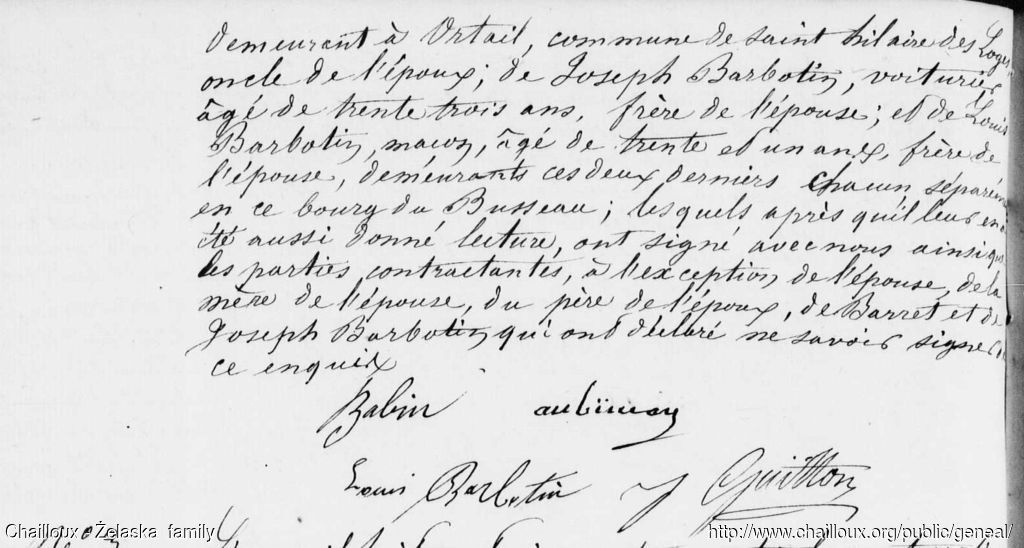 demeurant à Ortail, commune de saint hilaire des Loges
oncle de l'époux; de Joseph Barbotin, voiturier
âgé de trente trois ans, frère de l'épouse; et de Louis
Barbotin, maçon, âgé de trente et un ans, frère de
l'épouse, demeurants ces deux derniers chacun séparém
en ce bourg du Busseau; lesquels après qu'il leur en a
été aussi donné lecture, ont signé avec nous ainsi que
les parties contractantes, à l'exception de l'épouse, de la
mère de l'épouse, du père de l'époux, de Barret et de
Joseph Barbotin qui ont déclaré ne savoir signer
ce enquix
Babin
Louis Barbotin J Guitton
Chailloux - Żelaska family
http://www.chailloux.org/public/geneal/